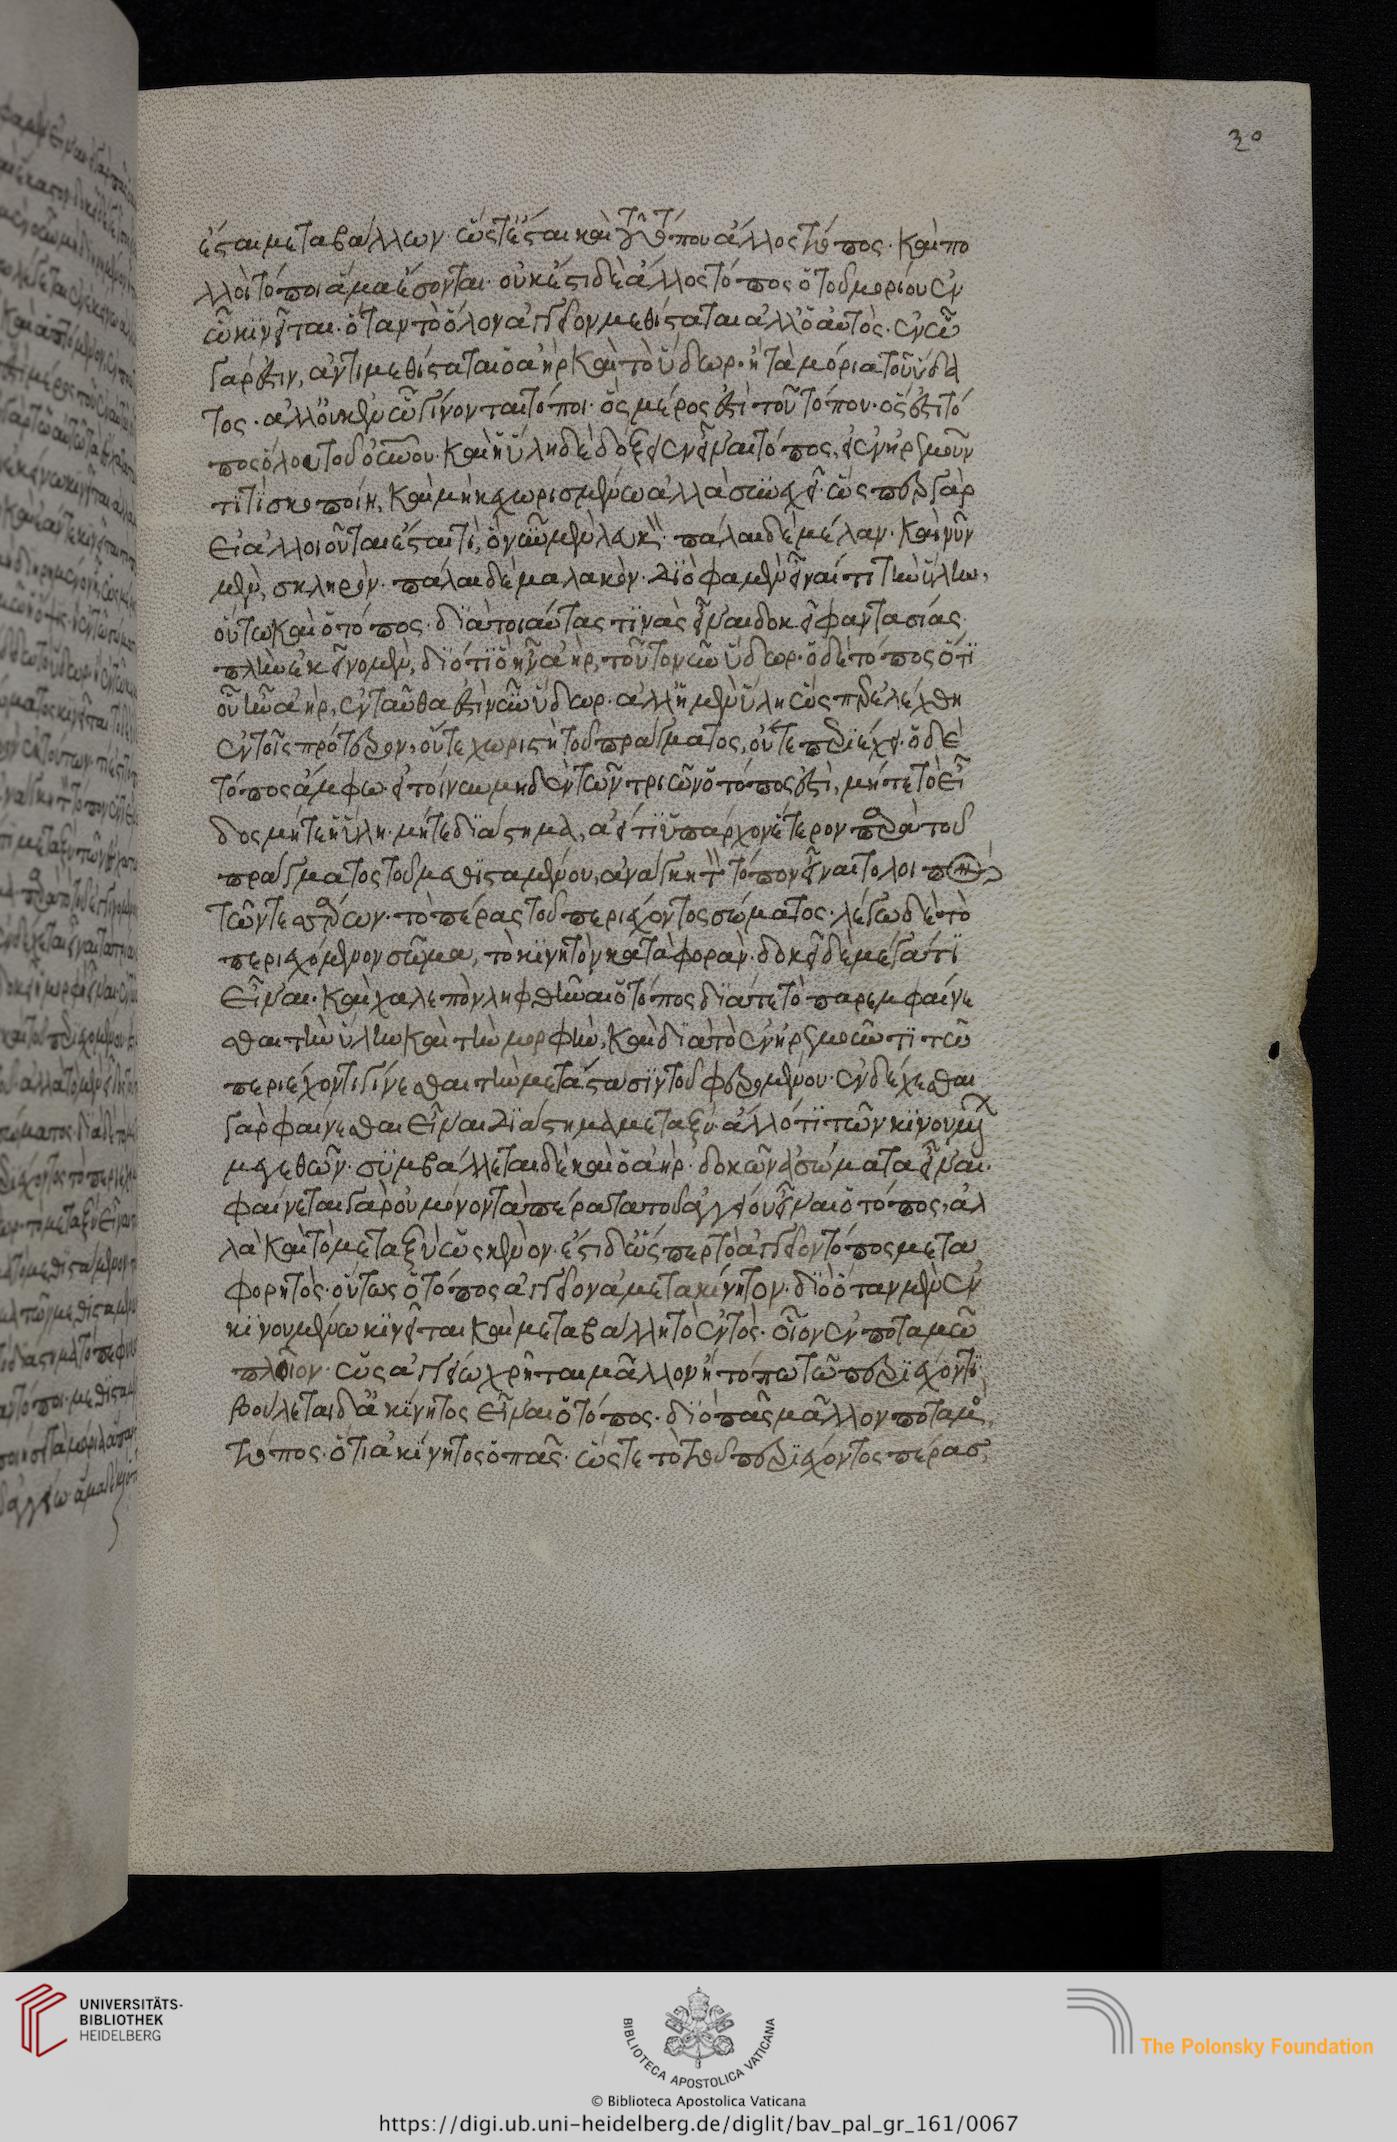 ἔσται μεταβάλλων· ὥστε ἔσται καὶ τοῦ τόπου ἄλλος τόπος· καὶ πο
λλοὶ τόποι ἅμα ἔσονται· οὐκ ἔστι δὲ ἄλλος τόπος ὁ τοῦ μορίου ἐν
ᾧ κινεῖται· ὅταν τὸ ὅλον ἀγγεῖον μεθίσταται ἀλλ' ὁ αὐτὸς· ἐν ᾧ
γάρ ἐστιν, ἀντιμεθίσταται ὁ ἀὴρ καὶ τὸ ὕδωρ· ἢ τὰ μόρια τοῦ ὕδα
τος· ἀλλ' οὐκ ἐν ᾧ γίνονται τόποι· ὃς μέρος ἐστὶ τοῦ τόπου· ὅς ἐστι τό
πος ὅλου τοῦ οὐνου· καὶ ἡ ὕλη δὲ δόξει ἂν εἶναι τόπος, εἰ ἐν ἠρεμοῦν
τι τὶ σκοποίη, καὶ μὴ κεχωρισμένω ἀλλὰ συνεχεῖ· ὥσπερ γὰρ
εἰ ἀλλοιοῦται ἔσται τὶ, ὃ νῦν μὲν λευκ· πάλαι δὲ μέλαν· καὶ νῦν
μὲν, σκληρόν· πάλαι δὲ μαλακόν· διό φαμεν εἶναί τι τὴν ὕλην,
οὕτω καὶ ὁ τόπος· διὰ τοιαύτας τινὰς εἶναι δοκεῖ φαντασίας·
πλὴν ἐκεῖνο μὲν, διότι ὃ ἦν ἀὴρ, τοῦτο νῦν ὕδωρ· ὁ δὲ τόπος ὅτι
οὗ ἦν ἀὴρ, ἐνταῦθα ἐστὶ νῦν ὕδωρ· ἀλλ' ἡ μὲν ὕλη ὥσπερ ἐλέχθη
ἐν τοῖς πρότερον, οὔτε χωριστὴ τοῦ πράγματος, οὔτε περιέχει· ὁ δὲ
τόπος ἄμφω· εἰ τοίνυν μηδὲν τῶν τριῶν ὁ τόπος ἐστὶ, μήτε τὸ εἶ
δος μήτε ἡ ὕλη· μήτε διάστημα, ἀεί τι ὑπάρχον ἕτερον παρὰ τοῦ
πράγματος τοῦ μεθισταμένου, ἀνάγκη τ τόπον εἶναι τὸ λοιπ
τῶν τεσσάρων· τὸ πέρας τοῦ περιέχοντος σώματος· λέγω δὲ τὸ
περιεχόμενον σῶμα, τὸ κινητὸν κατὰ φοράν· δοκεῖ δὲ μέγα τί
εἶναι· καὶ χαλεπὸν ληφθῆναι ὁ τόπος διά τε τὸ παρεμφαίνε
σθαι τὴν ὕλην καὶ τὴν μορφὴν, καὶ διὰ τὸ ἐν ἠρεμοῦντι τῶ
περιέχοντι γίνεσθαι τὴν μετάστασιν τοῦ φερομένου· ἐνδέχεσθαι
γὰρ φαίνεσθαι εἶναι διάστημα μεταξύ· ἄλλό τι τῶν κινουμέν
μεγεθῶν· συμβάλλεται δὲ καὶ ὁ ἀὴρ· δοκῶν ἀσώματα εἶναι·
φαίνεται γὰρ οὐ μόνον τὰ πέρατα τοῦ ἀγγείου εἶναι ὁ τόπος, ἀλ
λὰ καὶ τὸ μεταξὺ ὡς κενὸν· ἔστι δ' ὥσπερ τὸ ἀγγεῖον τόπος μετα
φορητὸς· οὕτως ὁ τόπος ἀγγεῖον ἀμετακίνητον· διὸ ὅταν μὲν ἐν
κινουμένω κινεῖται καὶ μεταβάλλη τὸ ἐντὸς· οἷον ἐν ποταμῶ
πλοῖον· ὡς ἀγγείω χρῆται μᾶλλον ἢ τόπω τῶ περιέχοντι·
βούλεται δ' ἀκίνητος εἶναι ὁ τόπος· διὸ πᾶς μᾶλλον ποταμὸ
τόπος· ὅτι ἀκίνητος ὁ πᾶς· ὥστε τὸ τοῦ περιέχοντος πέρας,
30
UNIVERSITÄTS-
BIBLIOTHEK
HEIDELBERG
BIBLIOTECA APOSTOLICA VATICANA
The Polonsky Foundation
© Biblioteca Apostolica Vaticana
https://digi.ub.uni-heidelberg.de/diglit/bav_pal_gr_161/0067